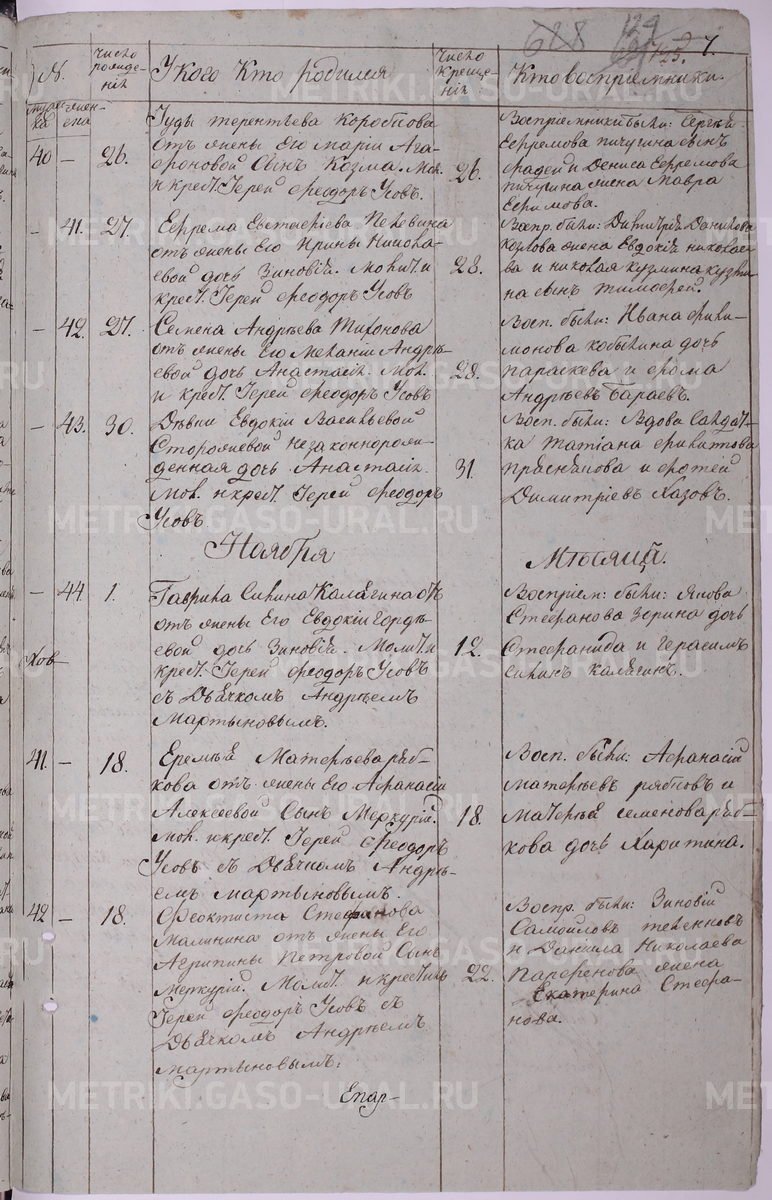 628 129
7.
№.
Число рожденій
У кого кто родился
Число крещенія
Кто восприемники.
муж-ска
жен-ска
40 — 26.
Іуды терентьева Коробкова
отъ жены Его Маріи Ага-
фоновой Сынъ Козма. Мол.
и крест. Іерей Ѳеодоръ Усовъ.
26.
Восприемники были: Сергѣй
Ефремова пичугина сынъ
Фадей и Дениса Ефремова
пичугина жена Мавра
Ефимова.
— 41. 27.
Ефрема Евстафіева Пелевина
отъ жены Его Ирины Никола-
евой дочь Зиновія. Молит. и
крест. Іерей Ѳеодоръ Усовъ
28.
Воспр. были: Димитрія Данилова
Козлова жена Евдокія николае-
ва и николая кузмина кузми-
на сынъ тимофей.
— 42. 27.
Семена Андрѣева Тихонова
отъ жены Его Меланіи Андрѣ-
евой дочь Анастасія. Мол.
и крест. Іерей Ѳеодоръ Усовъ
28.
Восп. были: Ивана фили-
монова кобылина дочь
параскева и фома
Андрѣевъ Бараевъ.
— 43. 30.
Дѣвки Евдокіи Васильевой
Сторожевой незаконнорож-
денная дочь Анастасія.
Мол. и крест. Іерей Ѳеодоръ
Усовъ
31.
Восп. были: Вдова Салдат-
ка татіана филиппова
и фотей
Димитріевъ Хазовъ.
Ноября
Мѣсяца.
— 44. 1.
Гаврила Силина Калягина
отъ жены Его Евдокіи Гордѣ-
евой дочь Зиновія. Молит. и
крест. Іерей Ѳеодоръ Усовъ
съ Дьячкомъ Андрѣемъ
Мартыновымъ.
12.
Воспріем: были: Якова
Стефанова Зорина дочь
Стефанида и Герасимъ
силинъ Калягинъ.
41. — 18.
Еремѣя Матвѣева ряб-
кова отъ жены Его Афанасіи
Алексеевой Сынъ Меркурій.
мол. и крест. Іерей Ѳеодоръ
Усовъ съ Дьячкомъ Андрѣ-
емъ мартыновымъ.
18.
Восп. были: Афанасій
матвѣевъ рябковъ и
Матвѣя семенова ряб-
кова дочь Харитина.
42 — 18.
Феоктиста Стефанова
Малинина отъ жены Его
Агрипины Петровой Сынъ
Меркурій. Молит. и крестилъ
Іерей Ѳеодоръ Усовъ съ
Дьячкомъ Андрѣемъ
Мартыновымъ.
22.
Воспр. были: Зиновій
Самойловъ
и Данила Николаева
Парфенова жена
Екатерина Стефа-
нова.
Епар-
METRIKI.GASO-URAL.RU